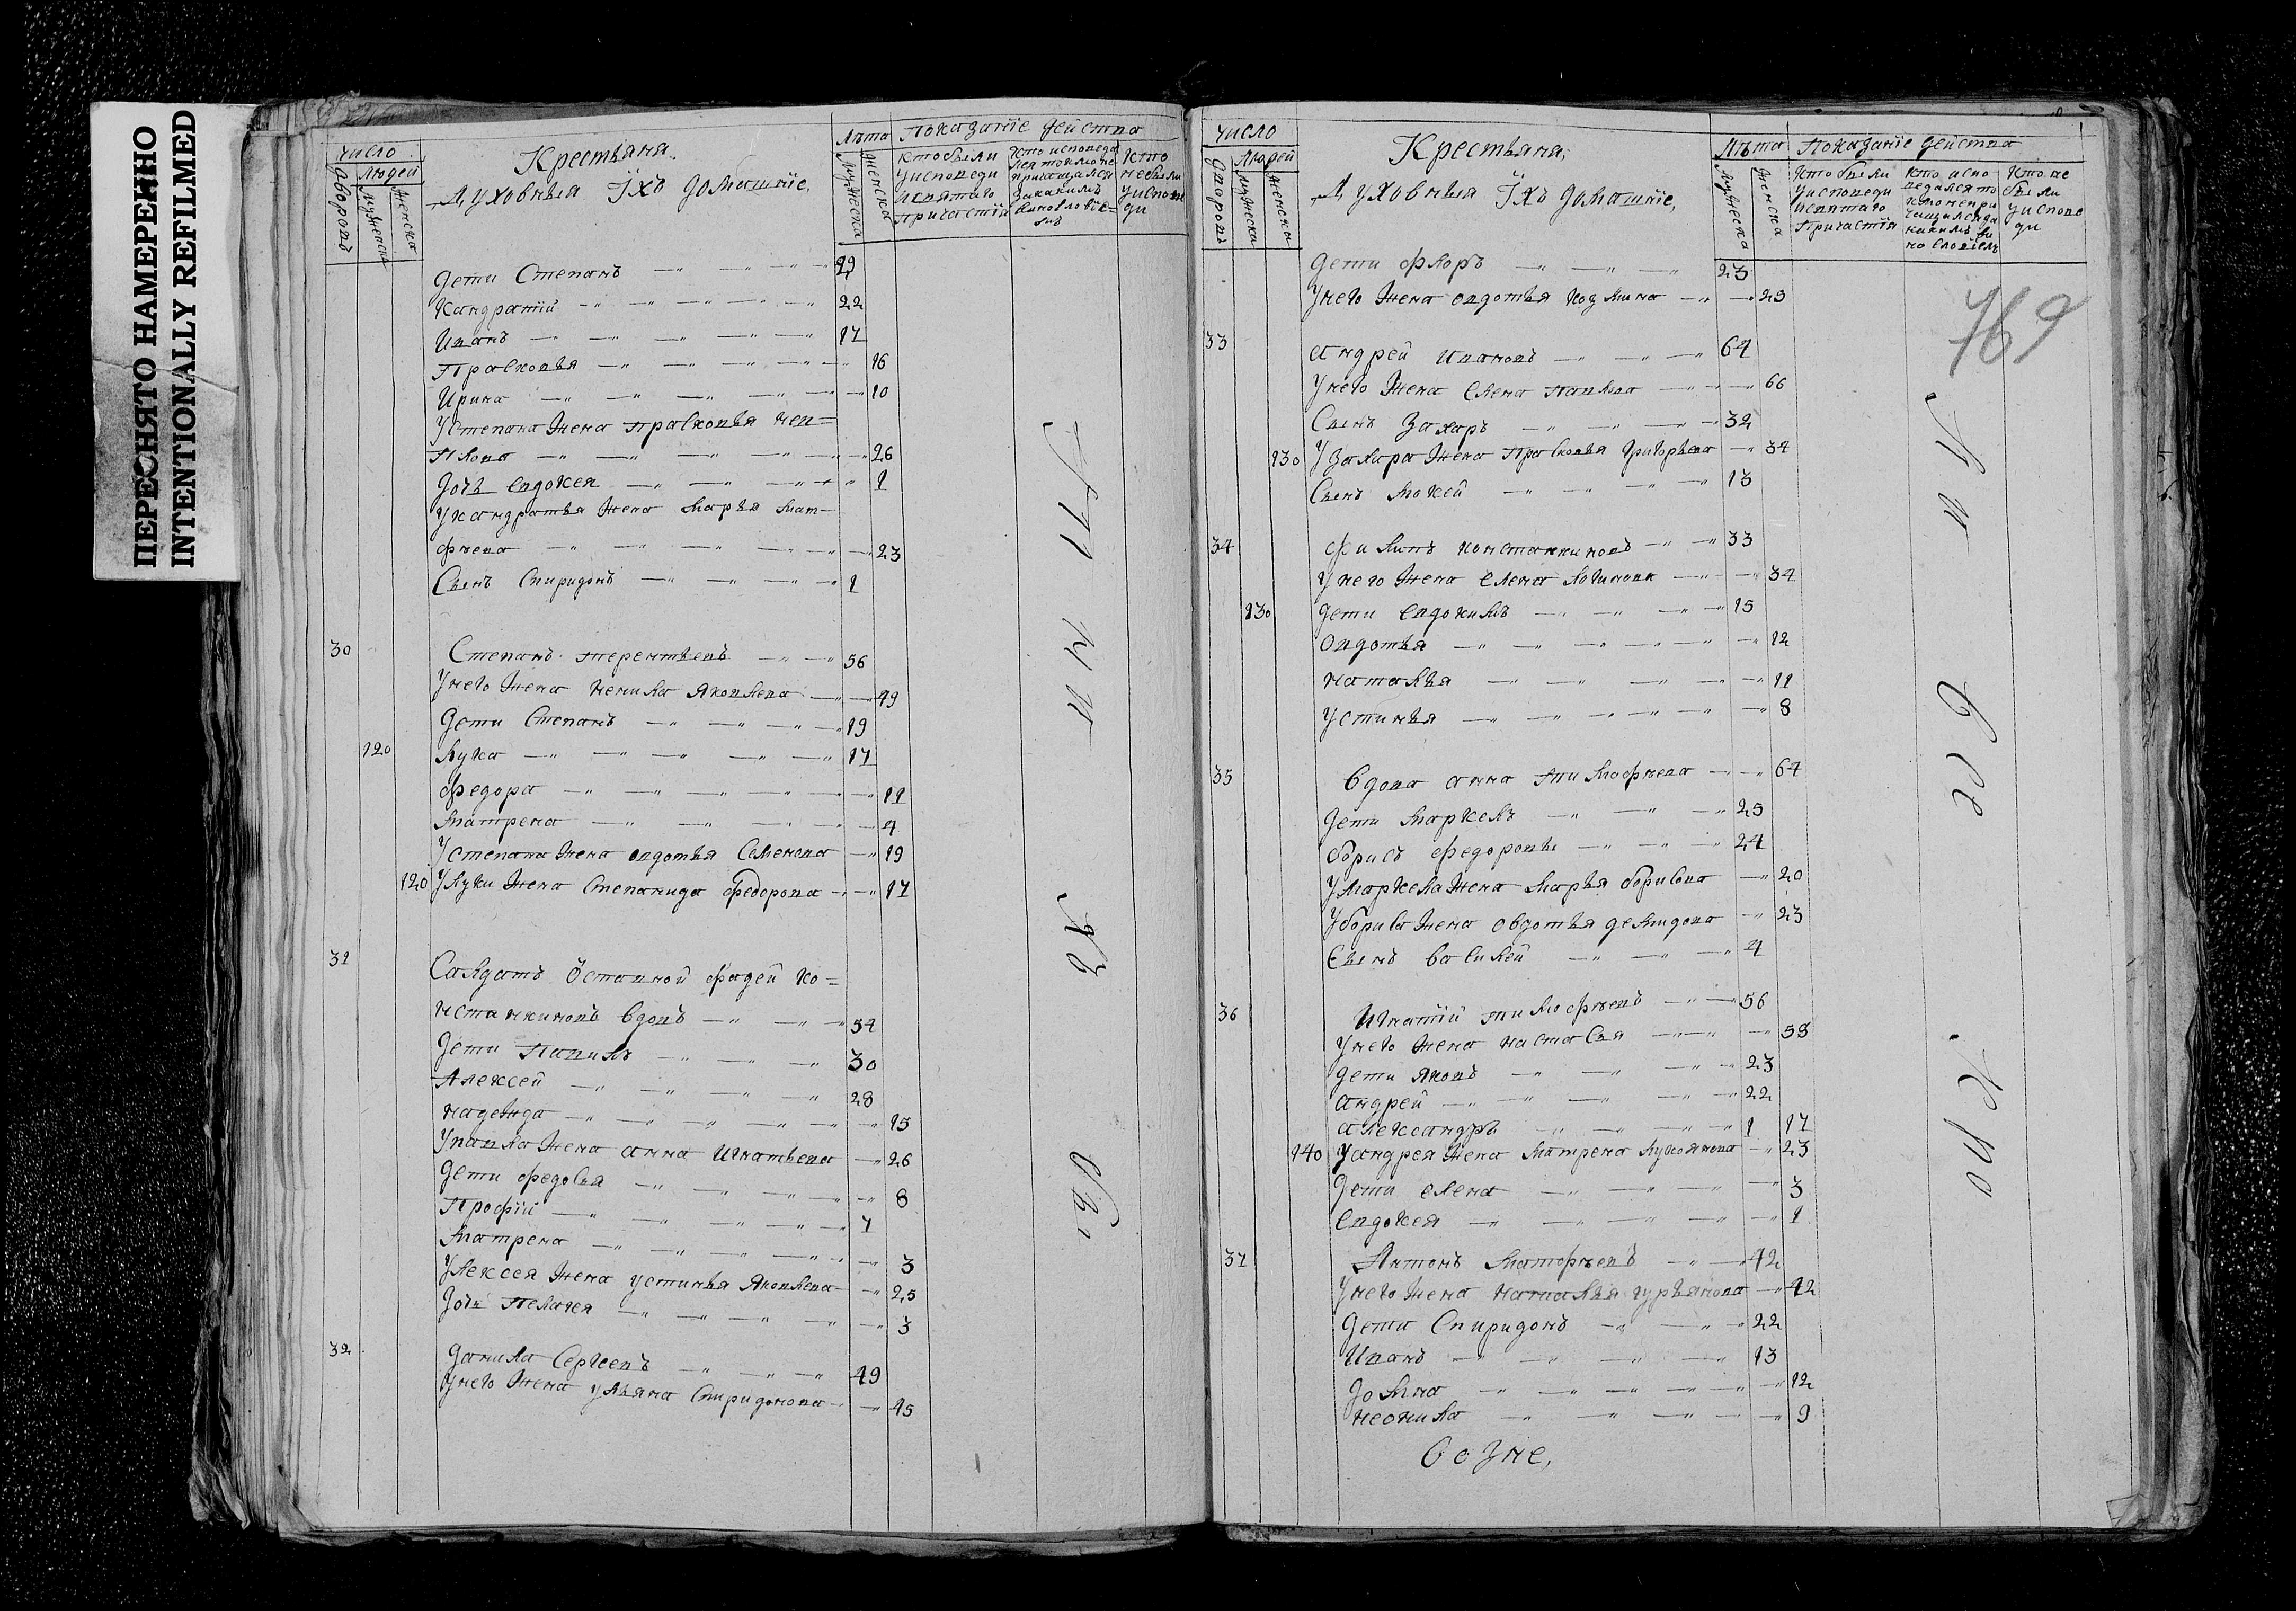 ПЕРЕСНЯТО НАМЕРЕННО
INTENTIONALLY REFILMED
число
дворовъ
людей
мужеска
женска
Крестьяня.
Духовныя Їхъ домашнїе,
Лѣта
мужеска
женска
Показанїе действа
кто были
уисповеди
исвятаго
причастїя
кто исповеда
лся токмо не
причащался
закакимъ
виновловїе=
мъ
кто
небыли
уиспове
ди
дети Степанъ 29
Кандратїй 22
Иванъ 17
Прасковья 16
Ирина 10
Устепана жена прасковья
26
дочь евдокея 1
Укандратья жена Марья Мат-
фѣева 23
Сынъ Спиридонъ 1
30 Степанъ терентьевъ 56
Унего жена ненила яковлева 49
дети Степанъ 19
120 Лука 17
федора 11
Матрена 4
Устепана жена овдотья Семенова 19
120 Улуки жена Степанида федорова 17
31 Салдатъ Ѻставной фадей ко=
нстанкиновъ вдовъ 54
дети Павилъ 30
Алексей 28
надежда 15
Упавла жена анна Игнатьева 26
дети федосья 8
Профїй 7
Матрена 3
Улексея жена устинья яковлева 25
дочь Пелагея 3
32 данила Сергеевъ 49
Унего жена ульяна Спиридонова 45
число
дворовъ
людей
мужеска
женска
Крестьяня,
Духовныя Їхъ домашнїе,
Лѣта
мужеска
женска
Показанїе действа
кто были
уисповеди
исвятаго
причастїя
кто испо
ведался то
кмо непри
чащился за
какимъ ви
новловїемъ
кто не
были
уиспове
ди
769
дети флоръ 23
Унего жена овдотья козмина 23
33 андрей ивановъ 64
Унего жена елена павлова 66
Сынъ Захаръ 32
130 Узахара жена Прасковья григорьева 34
Сынъ Мокей 13
34 филипъ констанкиновъ 33
Унего жена елена логинова 34
130 дети евдокимъ 15
овдотья 12
наталья 11
устинья 8
35 вдова анна тимофѣева 64
дети маркелъ 25
борисъ федоровы 24
Умаркела жена Марья борисова 20
Убориса жена овдотья демидова 23
Сынъ василей 4
36 Игнатїй тимофѣевъ 56
Унего жена настасья 58
дети яковъ 23
андрей 22
александръ 1 17
140 Уандрея жена матрена лукоянова 23
дети елена 3
евдокея 1
37 Антонъ Матофѣевъ 42
Унего жена наталья гурьянова 42
дети Спиридонъ 22
Иванъ 13
домна 12
неонила 9